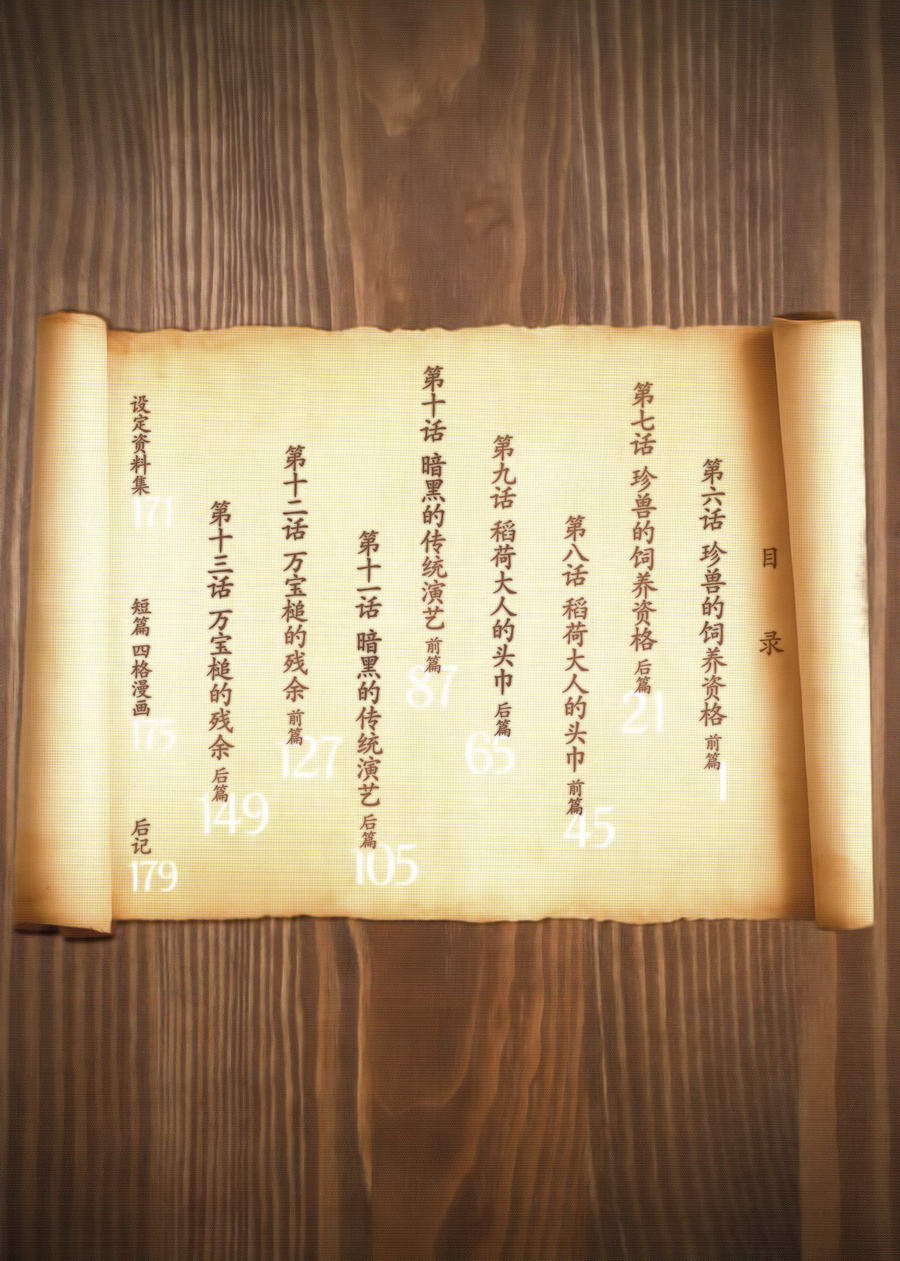 目录
第六话 珍兽的饲养资格 前篇 1
第七话 珍兽的饲养资格 后篇 21
第八话 稻荷大人的头巾 前篇 45
第九话 稻荷大人的头巾 后篇 65
第十话 暗黑的传统演艺 前篇 87
第十一话 暗黑的传统演艺 后篇 105
第十二话 万宝槌的残余 前篇 127
第十三话 万宝槌的残余 后篇 149
设定资料集 171
短篇 四格漫画 175
后记 179